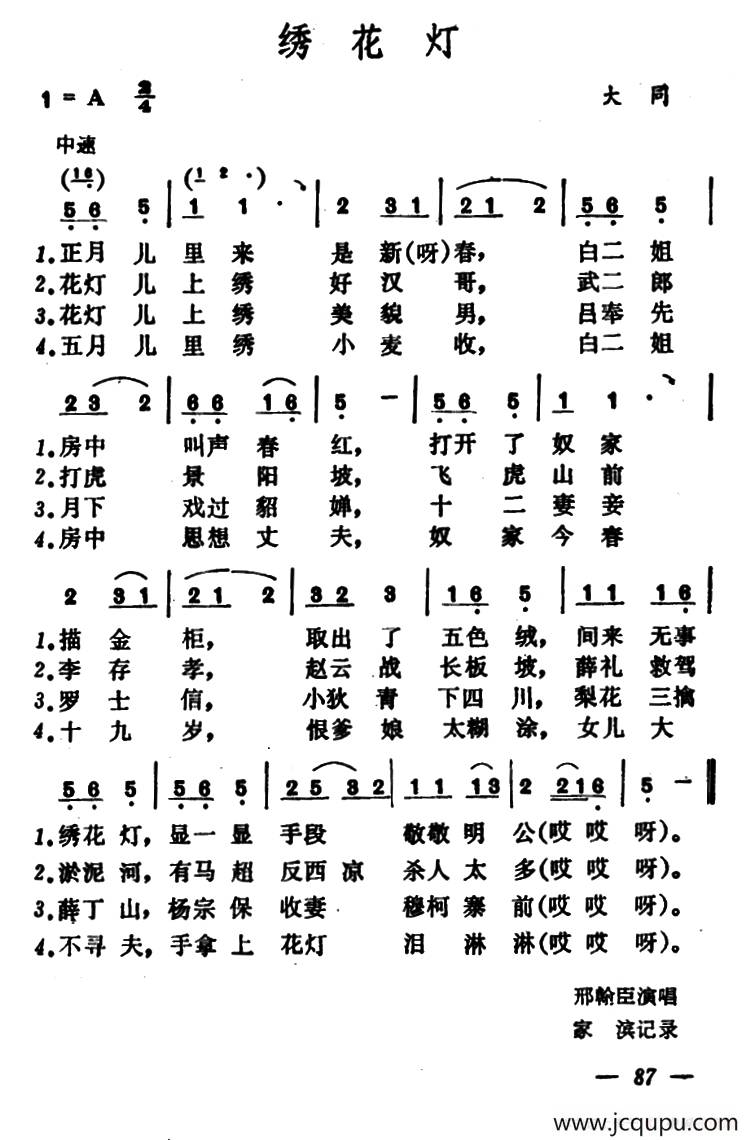 绣花灯
1=A 2/4 大同
中速
(1 6) (1 2 ·)
5 6 5 | 1 1 · | 2 3 1 | 2 1 2 | 5 6 5 |
1.正月儿里来是新(呀)春，白二姐
2.花灯儿上绣好汉哥，武二郎
3.花灯儿上绣美貌男，吕奉先
4.五月儿里绣小麦收，白二姐
2 3 2 | 6 6 1 6 | 5 — | 5 6 5 | 1 1 · |
1.房中叫声春红，打开了奴家
2.打虎景阳坡，飞虎山前
3.月下戏过貂婵，十二妻妾
4.房中思想丈夫，奴家今春
2 3 1 | 2 1 2 | 3 2 3 | 1 6 5 | 1 1 1 6 |
1.描金柜，取出了五色绒，间来无事
2.李存孝，赵云战长板坡，薛礼救驾
3.罗士信，小狄青下四川，梨花三擒
4.十九岁，恨爹娘太糊涂，女儿大
5 6 5 | 5 6 5 | 2 5 3 2 | 1 1 1 3 | 2 2 1 6 | 5 — ‖
1.绣花灯，显一显手段敬敬明公(哎哎呀)。
2.淤泥河，有马超反西凉杀人太多(哎哎呀)。
3.薛丁山，杨宗保收妻穆柯寨前(哎哎呀)。
4.不寻夫，手拿上花灯泪淋淋(哎哎呀)。
邢翰臣演唱
家滨记录
— 87 —
www.jcqupu.com